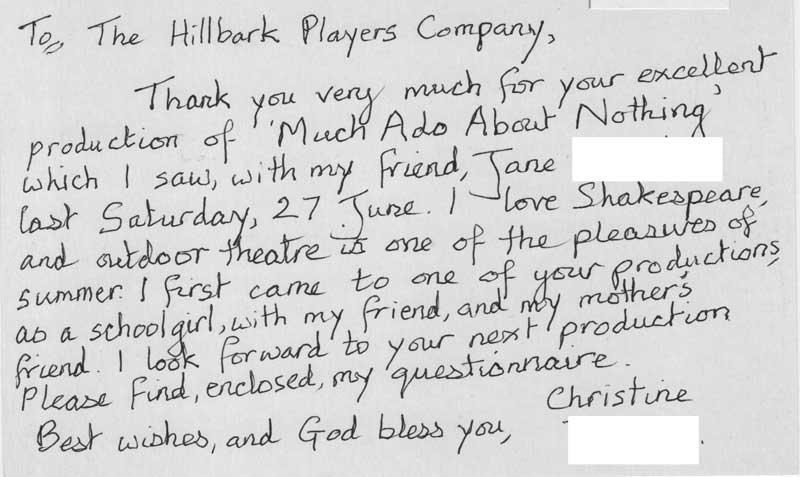 To, The Hillbark Players Company,
Thank you very much for your excellent
production of 'Much Ado About Nothing'
which I saw, with my friend, Jane
last Saturday, 27 June. I love Shakespeare,
and outdoor theatre is one of the pleasures of
summer. I first came to one of your productions,
as a schoolgirl, with my friend, and my mother's
friend. I look forward to your next production
Please find, enclosed, my questionnaire.
Best wishes, and God bless you, Christine